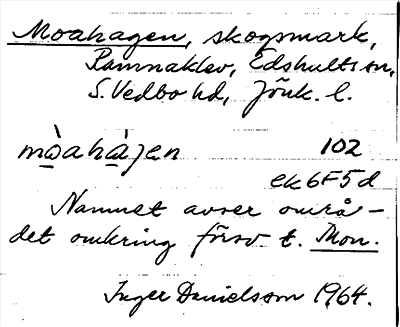 Moahagen, skogsmark,
Ramnaklev, Edshults sn,
S. Vedbo hd, Jönk. l.
mò̱ahà̱jen 102
ek6F5d
Namnet avser områ-
det omkring försv t. Mon.
Inger Danielsson 1964.